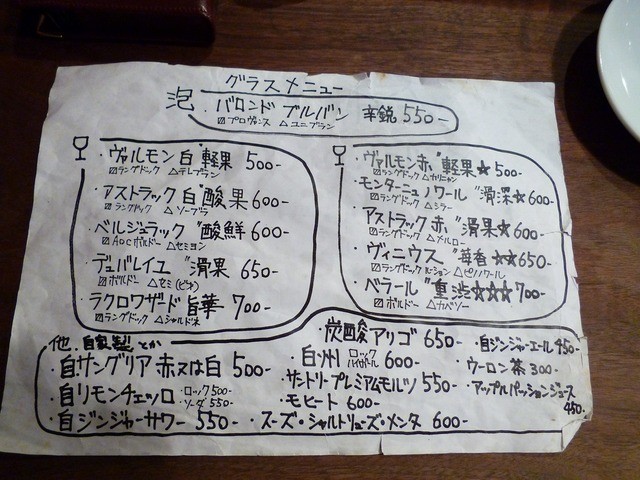 グラスメニュー
泡. バロンド ブルバン 辛鋭 550-
☑プロヴァンス △ユニブラン
・ヴァルモン 白〃軽果 500-
☑ラングドック △テレブラン
・アストラック 白〃酸果 600-
☑ラングドック △ソーブラ
・ベルジュラック〃酸鮮 600-
☑AOCボルドー △セミヨン
・デュバレイユ 〃滑果 650-
☑ボルドー △セミ(ビオ)
・ラクロワザード〃旨華 700-
☑ラングドック △シャルドネ
・ヴァルモン赤〃軽果☆500-
☑ラングドック △カリニャン
・モンターニュノワール〃滑深☆600-
☑ラングドック △シラー
・アストラック 赤〃滑果☆600-
☑ラングドック △メルロー
・ヴィニウス〃苺香 ☆☆650-
☑ラングドック ルーション △ピノノワール
・ベラール〃重渋☆☆☆700-
☑ボルドー △カベソー
他. 自家製 とか
・自サングリア 赤又は白 500-
・自リモンチェッロ ・ロック500- ・ソーダ 550-
・自ジンジャーサワー 550-
・炭酸 アリゴ 650-
・白州 ロック ハイボール 600-
・サントリープレミアムモルツ 550-
・モヒート 600-
・スーズ・シャルトリューズ・メンタ 600-
・自ジンジャーエール450-
・ウーロン茶 300-
・アップルパッションジュース 450-